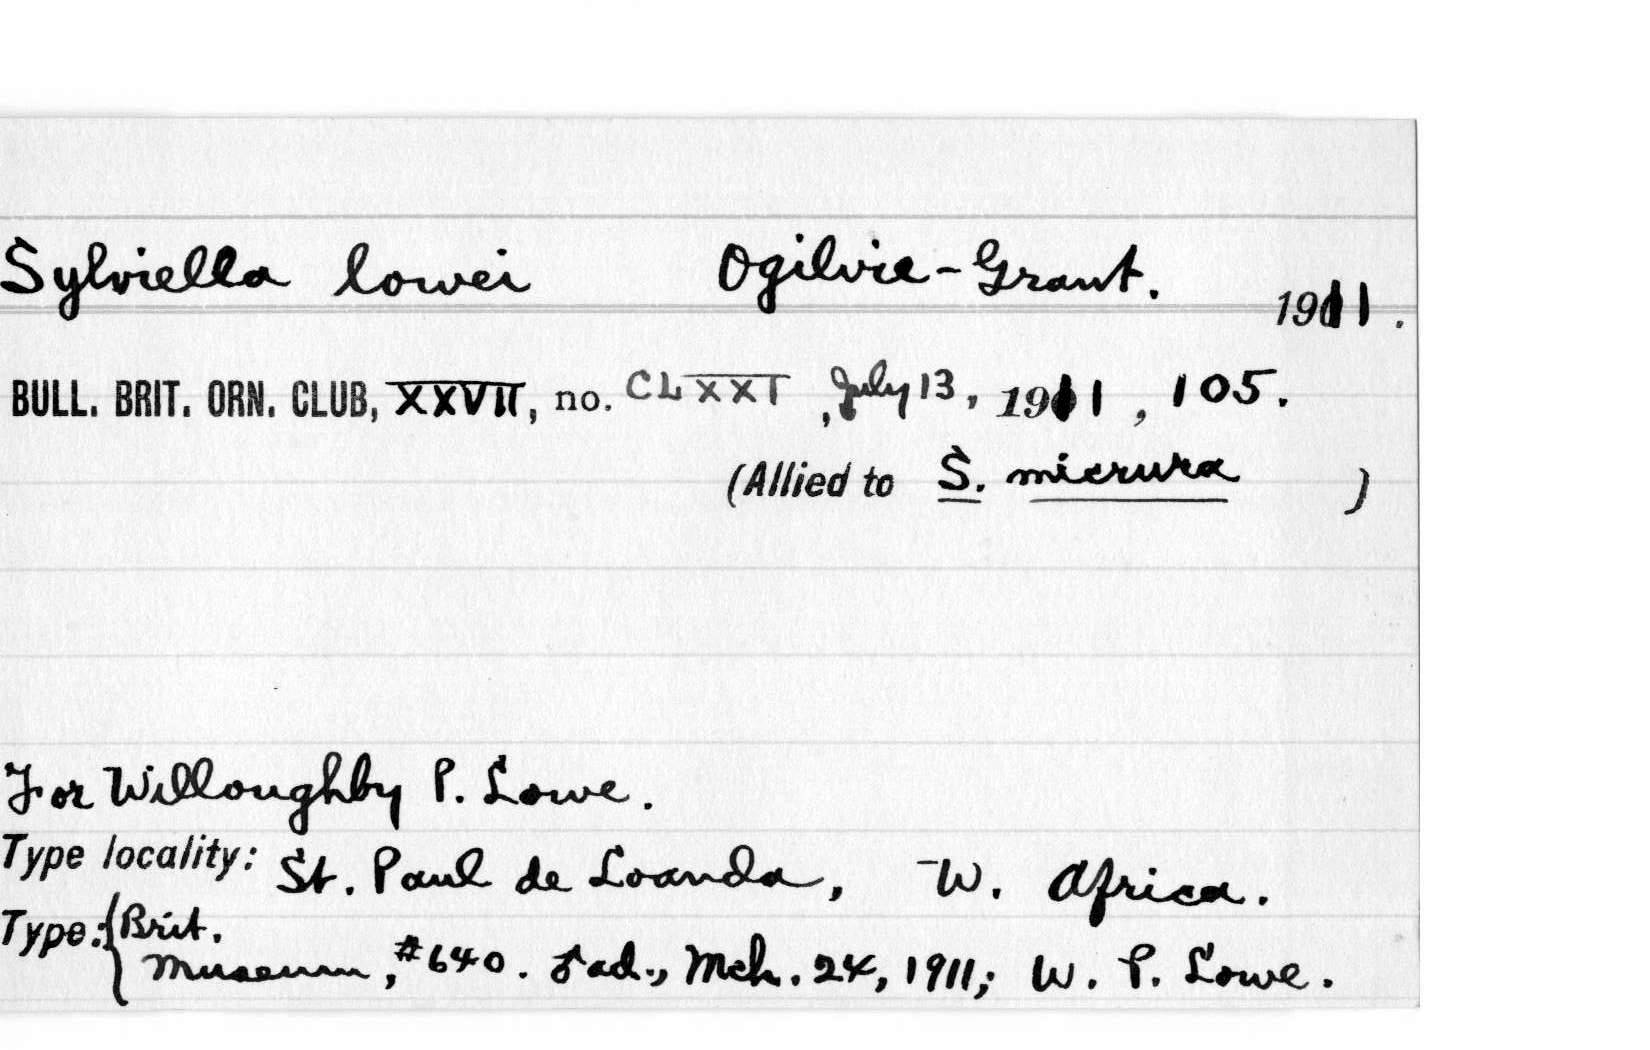 Sylviella lowei Ogilvie-Grant. 1911.
BULL. BRIT. ORN. CLUB, XXVII, no. CLXXI, July 13, 1911, 105.
(Allied to S. micrura )
For Willoughby P. Lowe.
Type locality: St. Paul de Loanda, W. Africa.
Type: Brit.
Museum, #640. ♂ad., Mch. 24, 1911; W. P. Lowe.